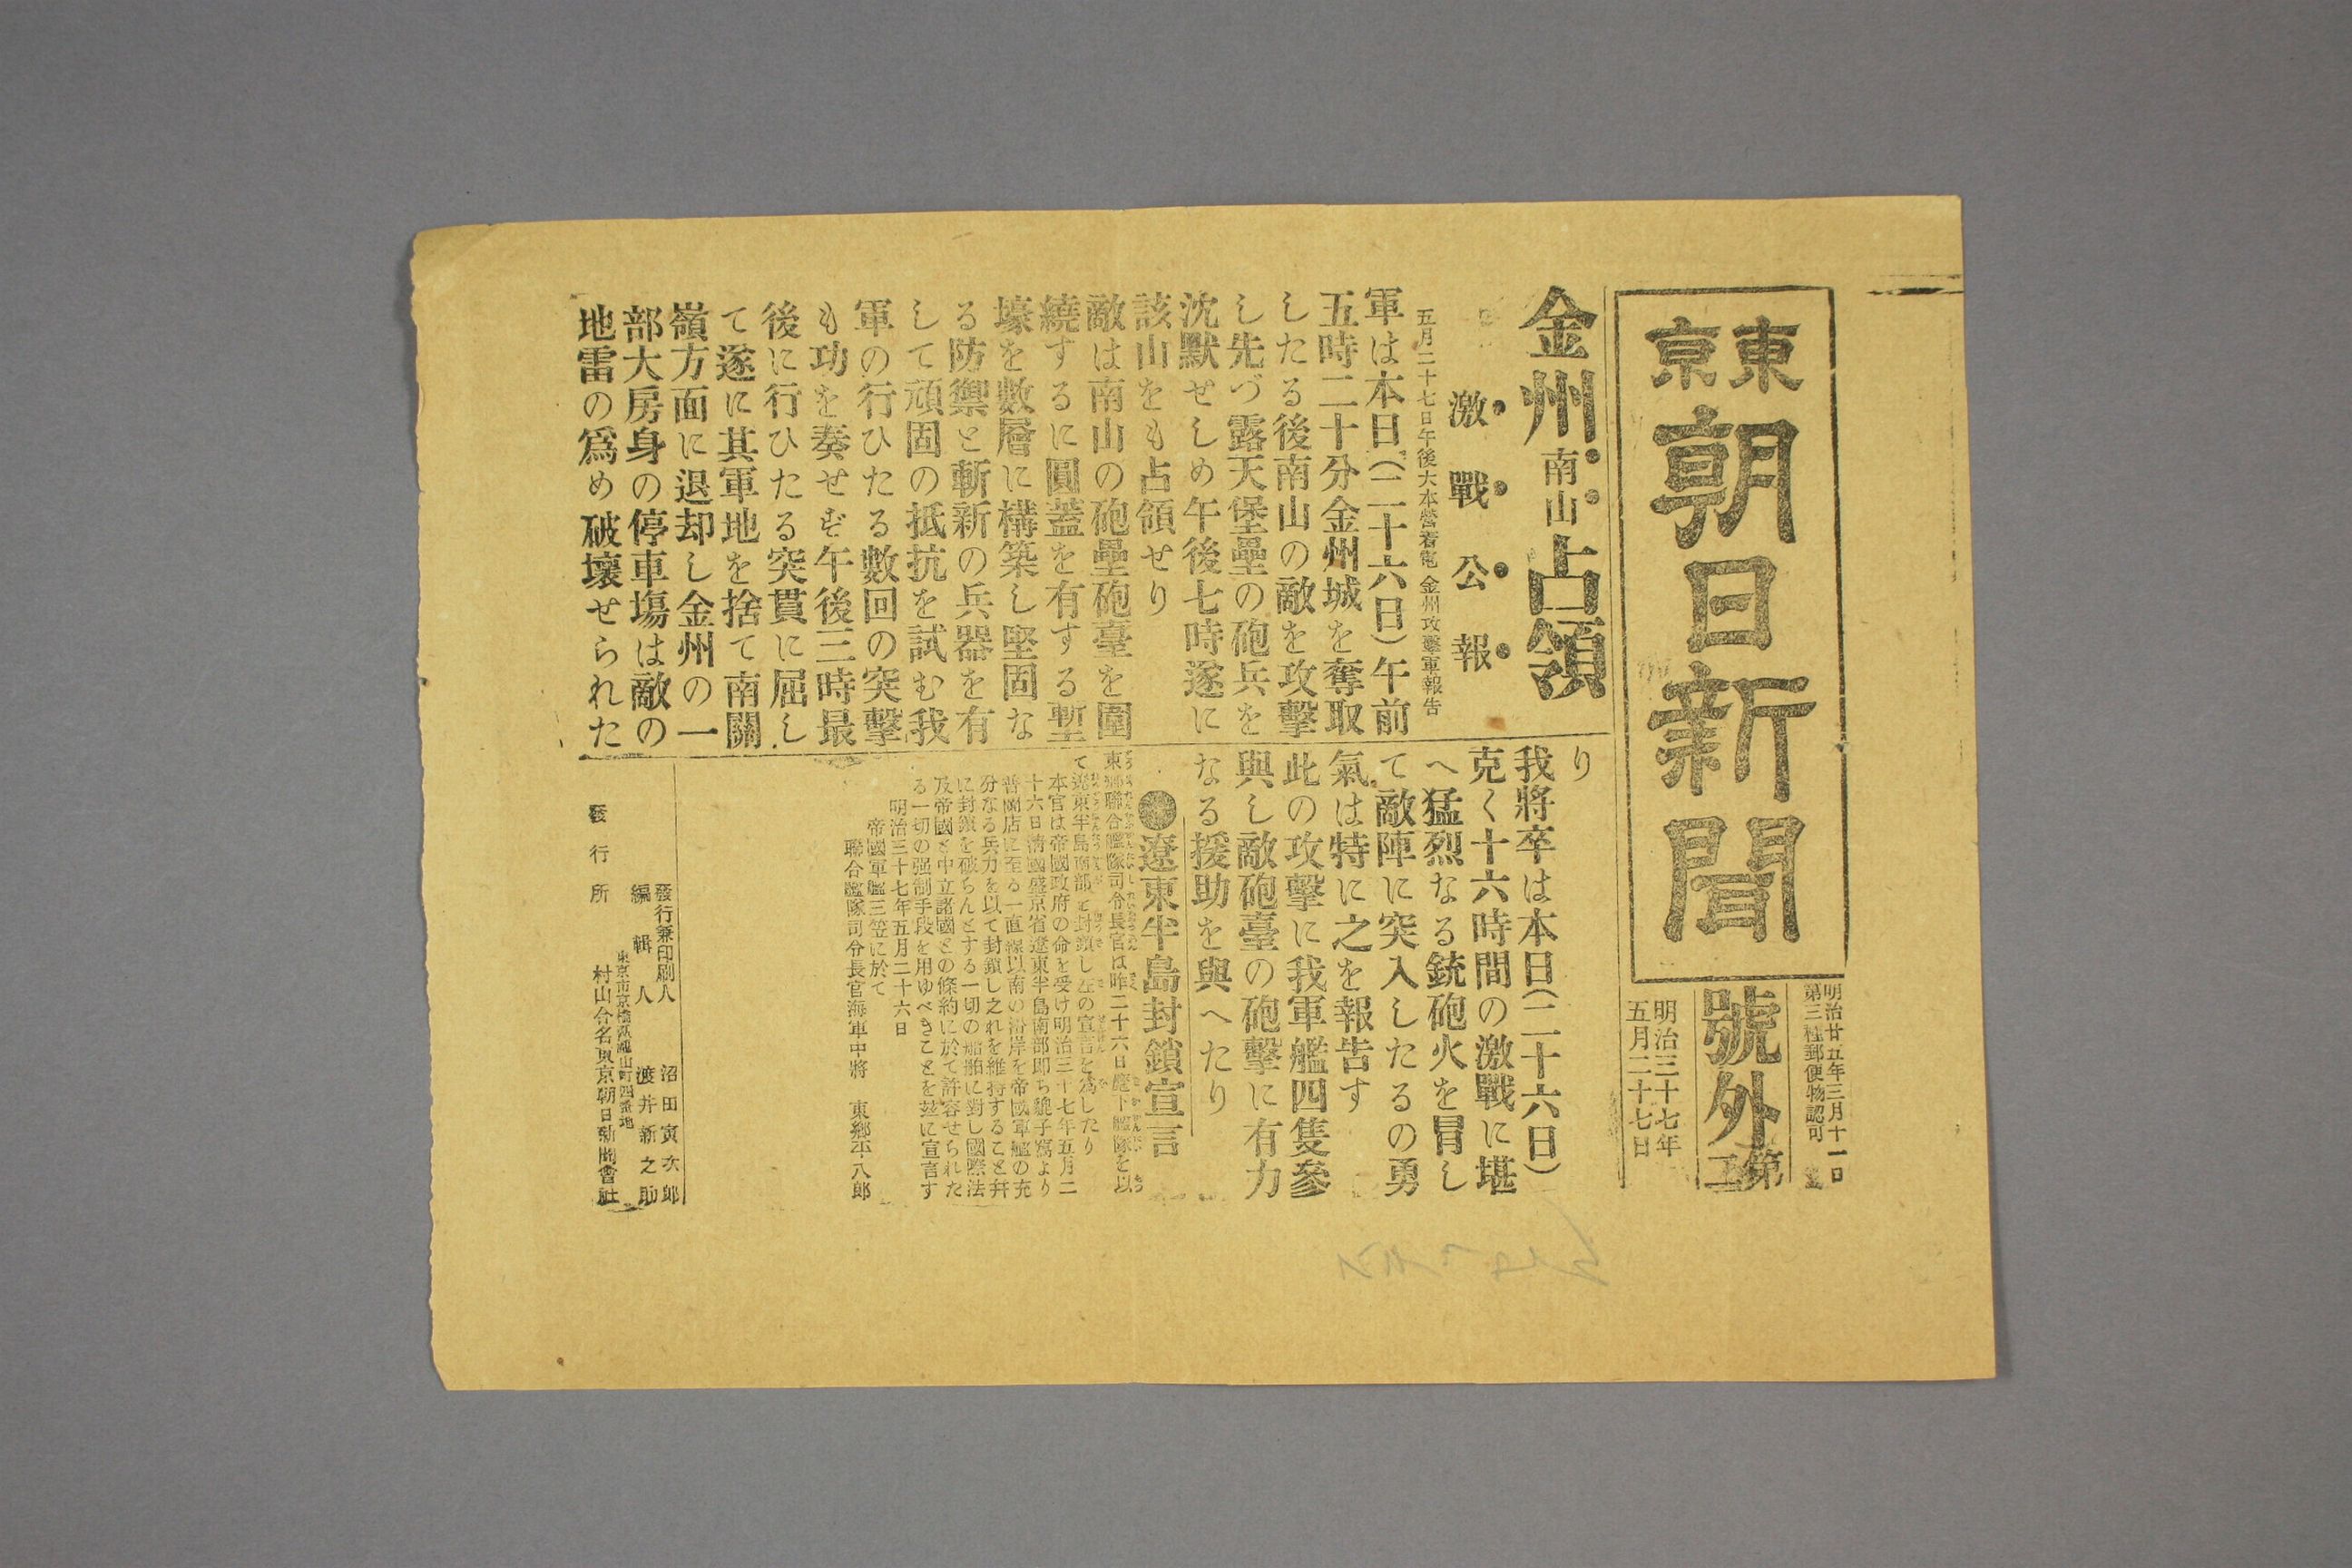 東京朝日新聞
明治廿五年三月十一日
第三種郵便物認可
號外
第二
明治三十七年
五月二十七日
金州南山占領
激戰公報
五月二十七日午後大本營着電 金州攻擊軍報告
軍は本日(二十六日)午前
五時二十分金州城を奪取
したる後南山の敵を攻擊
し先づ露天堡壘の砲兵を
沈默せしめ午後七時遂に
該山をも占領せり
敵は南山の砲壘砲臺を圍
繞するに圓蓋を有する塹
壕を數層に構築し堅固な
る防禦と斬新の兵器を有
して頑固の抵抗を試む我
軍の行ひたる數回の突擊
も功を奏せず午後三時最
後に行ひたる突貫に屈し
て遂に其軍地を捨て南關
嶺方面に退却し金州の一
部大房身の停車塲は敵の
地雷の爲め破壞せられた
り
我將卒は本日(二十六日)
克く十六時間の激戰に堪
へ猛烈なる銃砲火を冒し
て敵陣に突入したるの勇
氣は特に之を報告す
此の攻擊に我軍艦四隻參
與し敵砲臺の砲擊に有力
なる援助を與へたり
●遼東半島封鎖宣言
東鄉聯合艦隊司令長官は昨二十六日麾下艦隊を以
て遼東半島南部を封鎖し左の宣言を爲したり
本官は帝國政府の命を受け明治三十七年五月二
十六日淸國盛京省遼東半島南部即ち貔子窩より
普蘭店に至る一直線以南の沿岸を帝國軍艦の充
分なる兵力を以て封鎖し之れを維持すること幷
に封鎖を破らんとする一切の船舶に對し國際法
及帝國と中立諸國との條約に於て許容せられた
る一切の强制手段を用ゆべきことを玆に宣言す
明治三十七年五月二十六日
帝國軍艦三笠に於て
聯合艦隊司令長官海軍中將 東鄉平八郎
發行兼印刷人 沼田寅次郎
編輯人 渡井新之助
東京市京橋區瀧山町四番地
發行所 村山合名東京朝日新聞會社